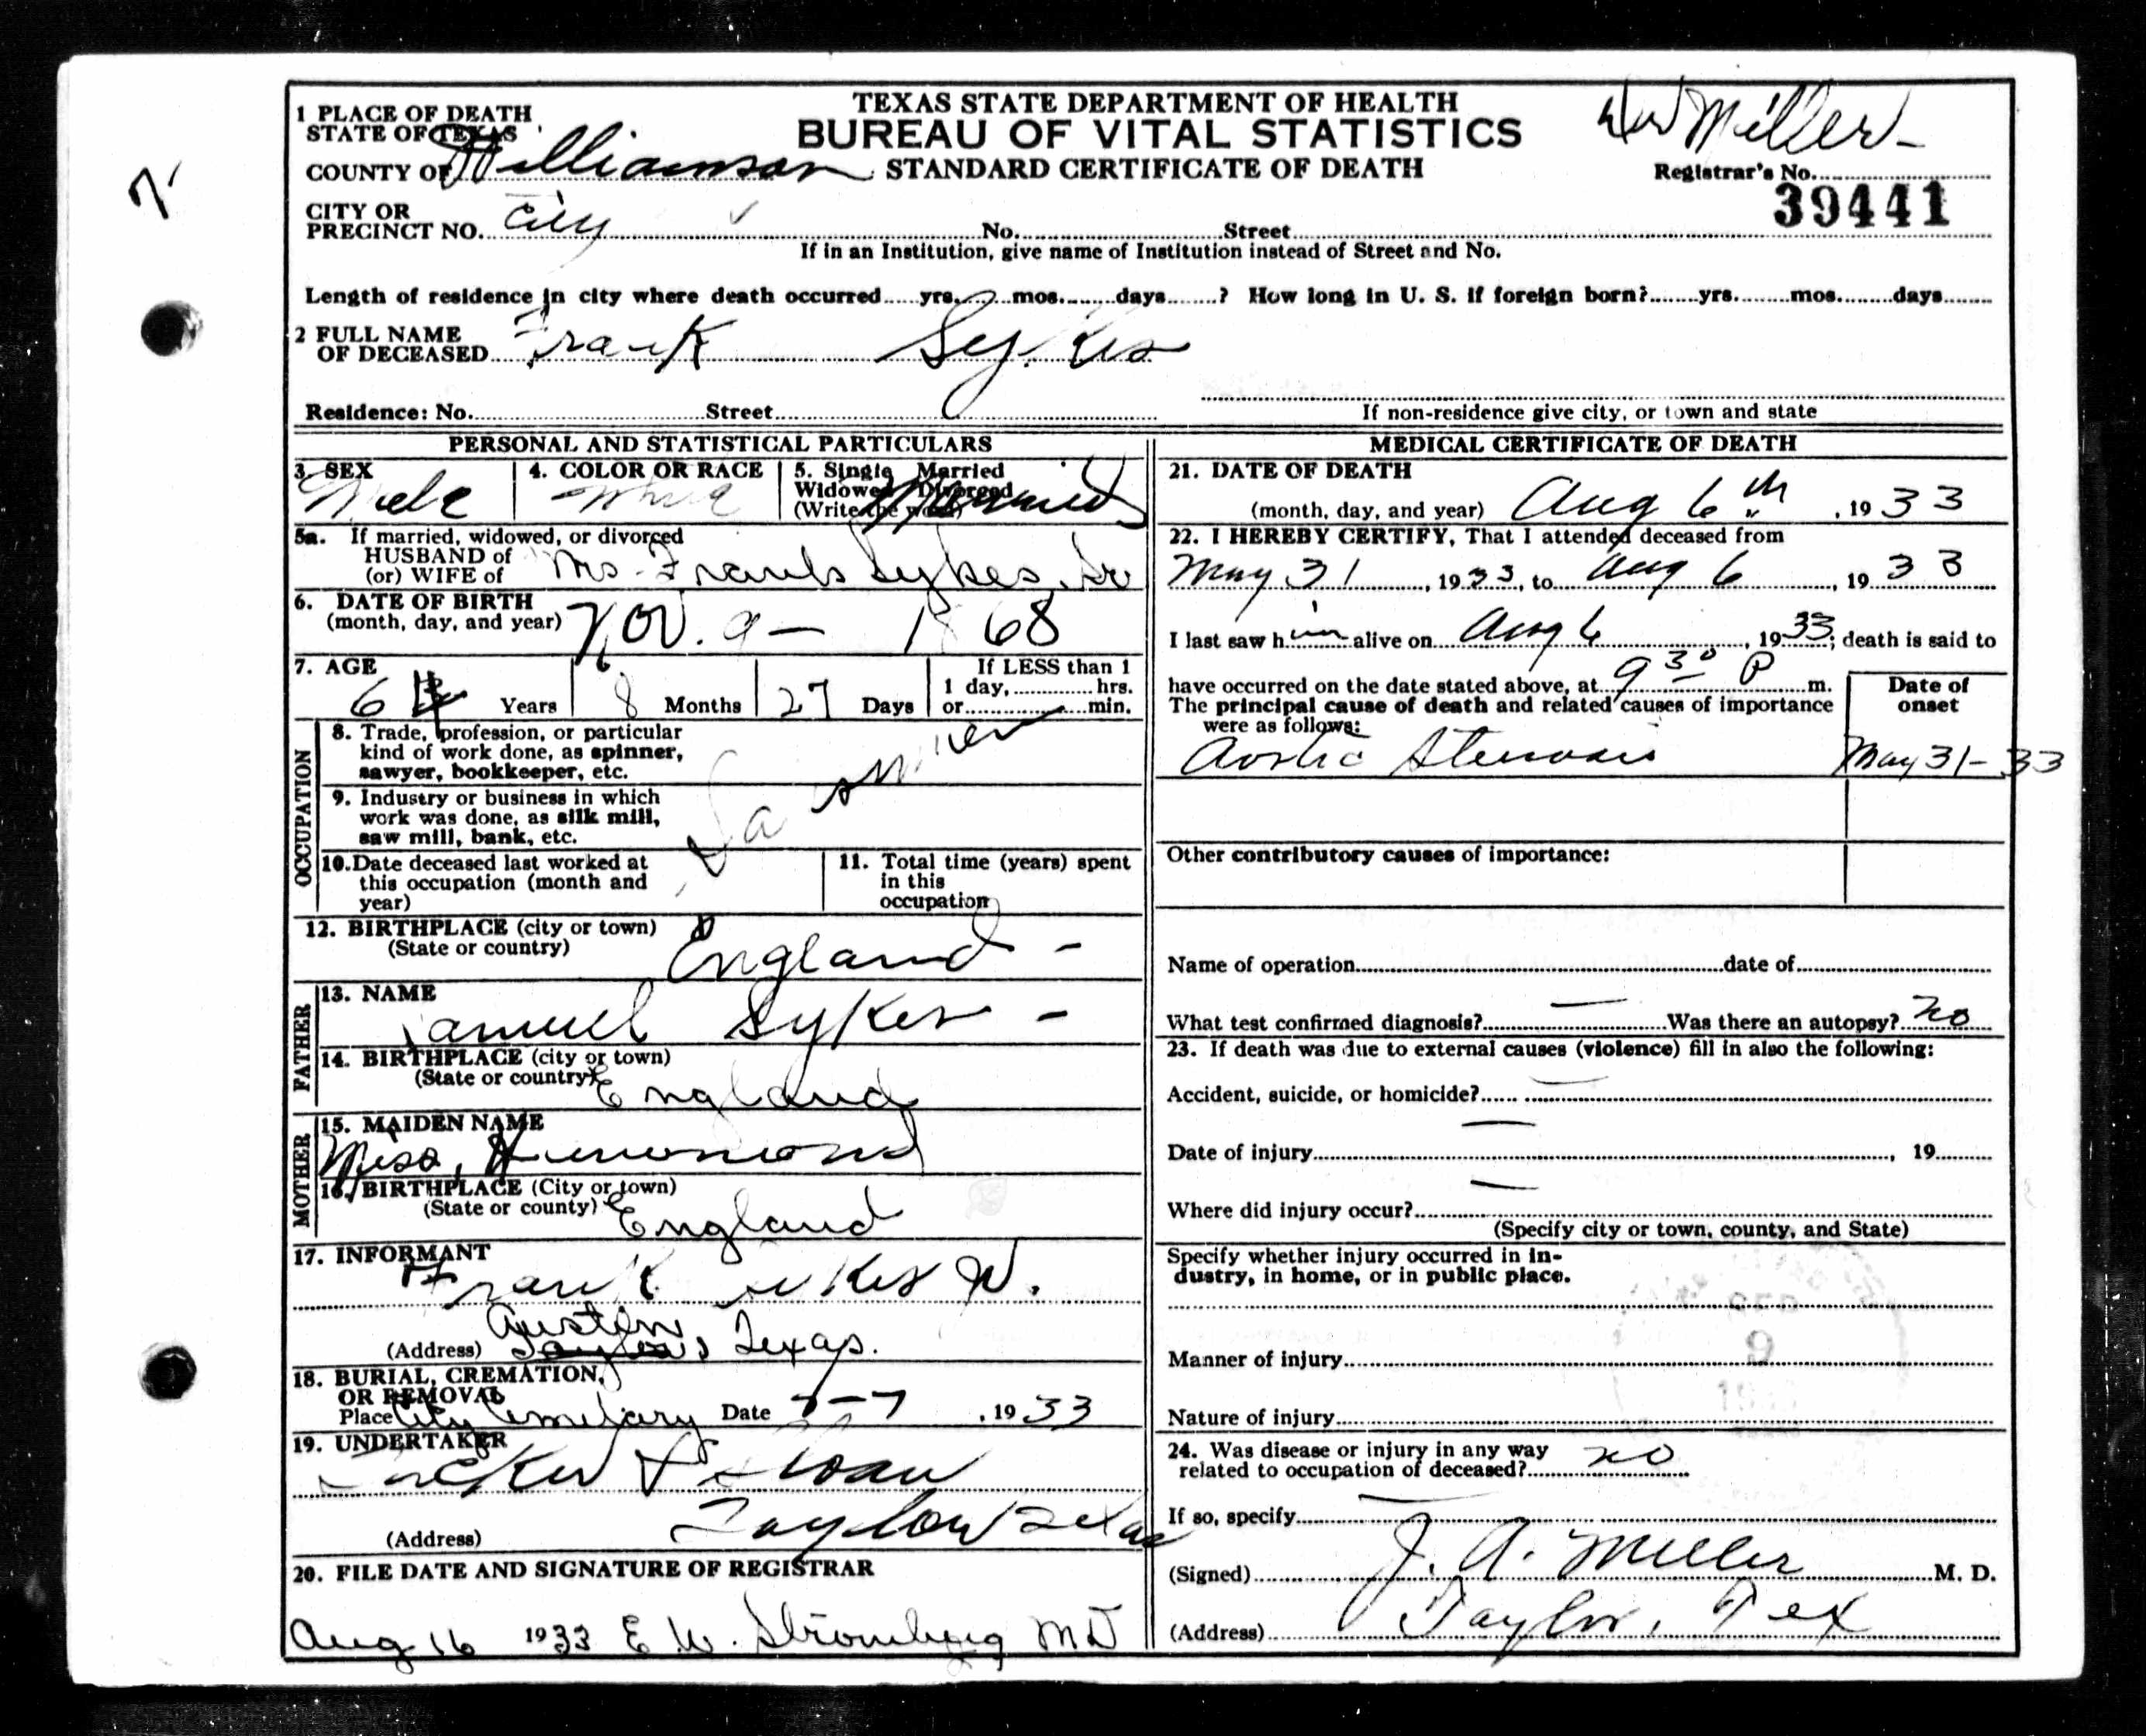 TEXAS STATE DEPARTMENT OF HEALTH
BUREAU OF VITAL STATISTICS
STANDARD CERTIFICATE OF DEATH
Miller
Registrar's No.
39441
1 PLACE OF DEATH
STATE OF TEXAS
COUNTY OF Williamson
CITY OR
PRECINCT NO. City No. Street
If in an Institution, give name of Institution instead of Street and No.
Length of residence in city where death occurred yrs. mos. days ? How long in U. S. if foreign born? yrs. mos. days
2 FULL NAME
OF DECEASED Frank Sykes
Residence: No. Street
If non-residence give city, or town and state
PERSONAL AND STATISTICAL PARTICULARS
3. SEX
Male
4. COLOR OR RACE
White
5. Single Married
Widowed Divorced
(Write the word)
Married
5a. If married, widowed, or divorced
HUSBAND of
(or) WIFE of Mrs. Frank Sykes, Sr
6. DATE OF BIRTH
(month, day, and year) Nov. 9 - 1868
7. AGE
64 Years 8 Months 27 Days
If LESS than 1
1 day, hrs.
or min.
OCCUPATION
8. Trade, profession, or particular
kind of work done, as spinner,
sawyer, bookkeeper, etc.
9. Industry or business in which
work was done, as silk mill,
saw mill, bank, etc.
10. Date deceased last worked at
this occupation (month and
year)
11. Total time (years) spent
in this
occupation
12. BIRTHPLACE (city or town)
(State or country) England -
FATHER
13. NAME
Samuel Sykes -
14. BIRTHPLACE (city or town)
(State or country) England
MOTHER
15. MAIDEN NAME
Miss,
16. BIRTHPLACE (City or town)
(State or county) England
17. INFORMANT
Frank Sykes Jr.
Austin
(Address) Taylor, Texas.
18. BURIAL, CREMATION,
OR REMOVAL
Place City Cemetary Date 8-7, 1933
19. UNDERTAKER
& Sloan
(Address) Taylor Texas
20. FILE DATE AND SIGNATURE OF REGISTRAR
Aug 16 1933 E. W. Stromberg MD
MEDICAL CERTIFICATE OF DEATH
21. DATE OF DEATH
(month, day, and year) Aug 6th, 1933
22. I HEREBY CERTIFY, That I attended deceased from
May 31, 1933, to Aug 6, 1933
I last saw him alive on Aug 6, 1933; death is said to
have occurred on the date stated above, at 9 30 P m.
The principal cause of death and related causes of importance
were as follows:
Date of
onset
Aortic Stenosis May 31-33
Other contributory causes of importance:
Name of operation date of
What test confirmed diagnosis? — Was there an autopsy? no
23. If death was due to external causes (violence) fill in also the following:
Accident, suicide, or homicide? —
Date of injury —, 19
Where did injury occur? —
(Specify city or town, county, and State)
Specify whether injury occurred in in-
dustry, in home, or in public place.
Manner of injury
Nature of injury
24. Was disease or injury in any way
related to occupation of deceased? no
If so, specify —
(Signed) J. A. Miller M. D.
(Address) Taylor, Tex